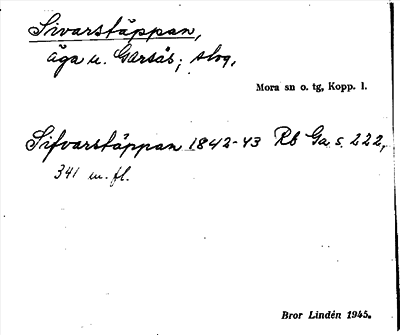 Sivarstäppan,
äga u. Garsås; skog.
Mora sn o. tg, Kopp. l.
Sifvarstäppan 1842-43 Rb Ga s. 222,
341 m. fl.
Bror Lindén 1945.